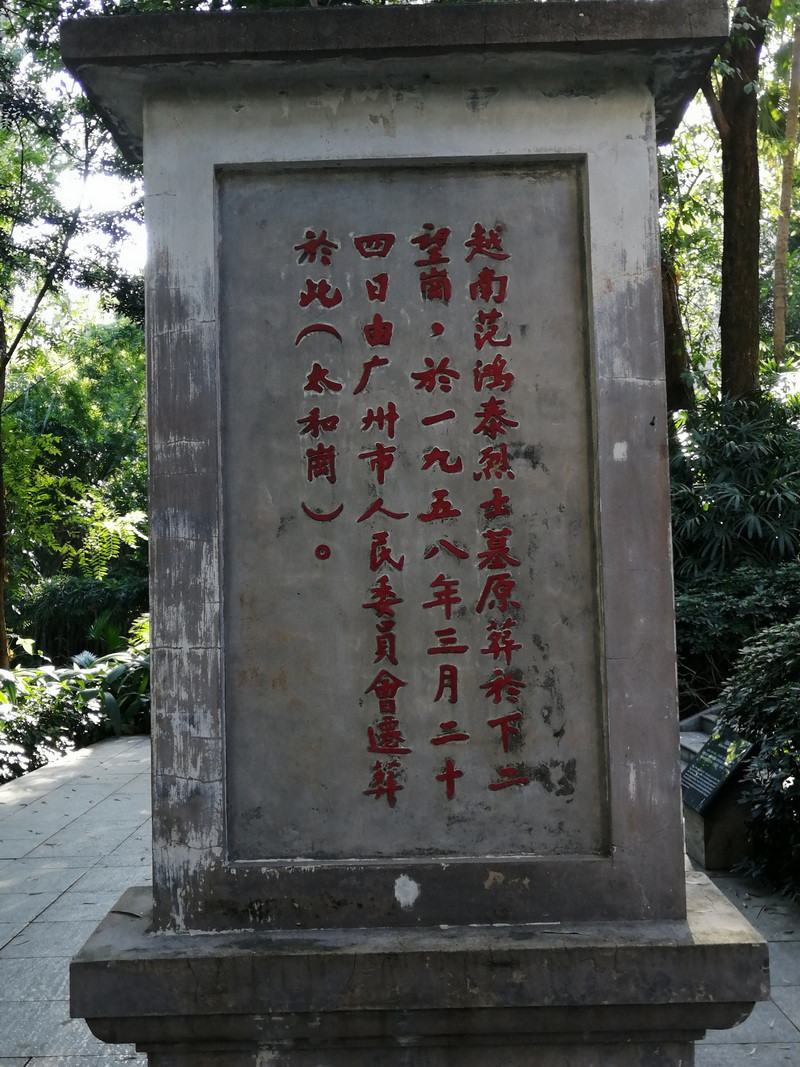 越南范鸿泰烈士墓原葬於下二
望崗，於一九五八年三月二十
四日由广州市人民委員會遷葬
於此（太和崗）。